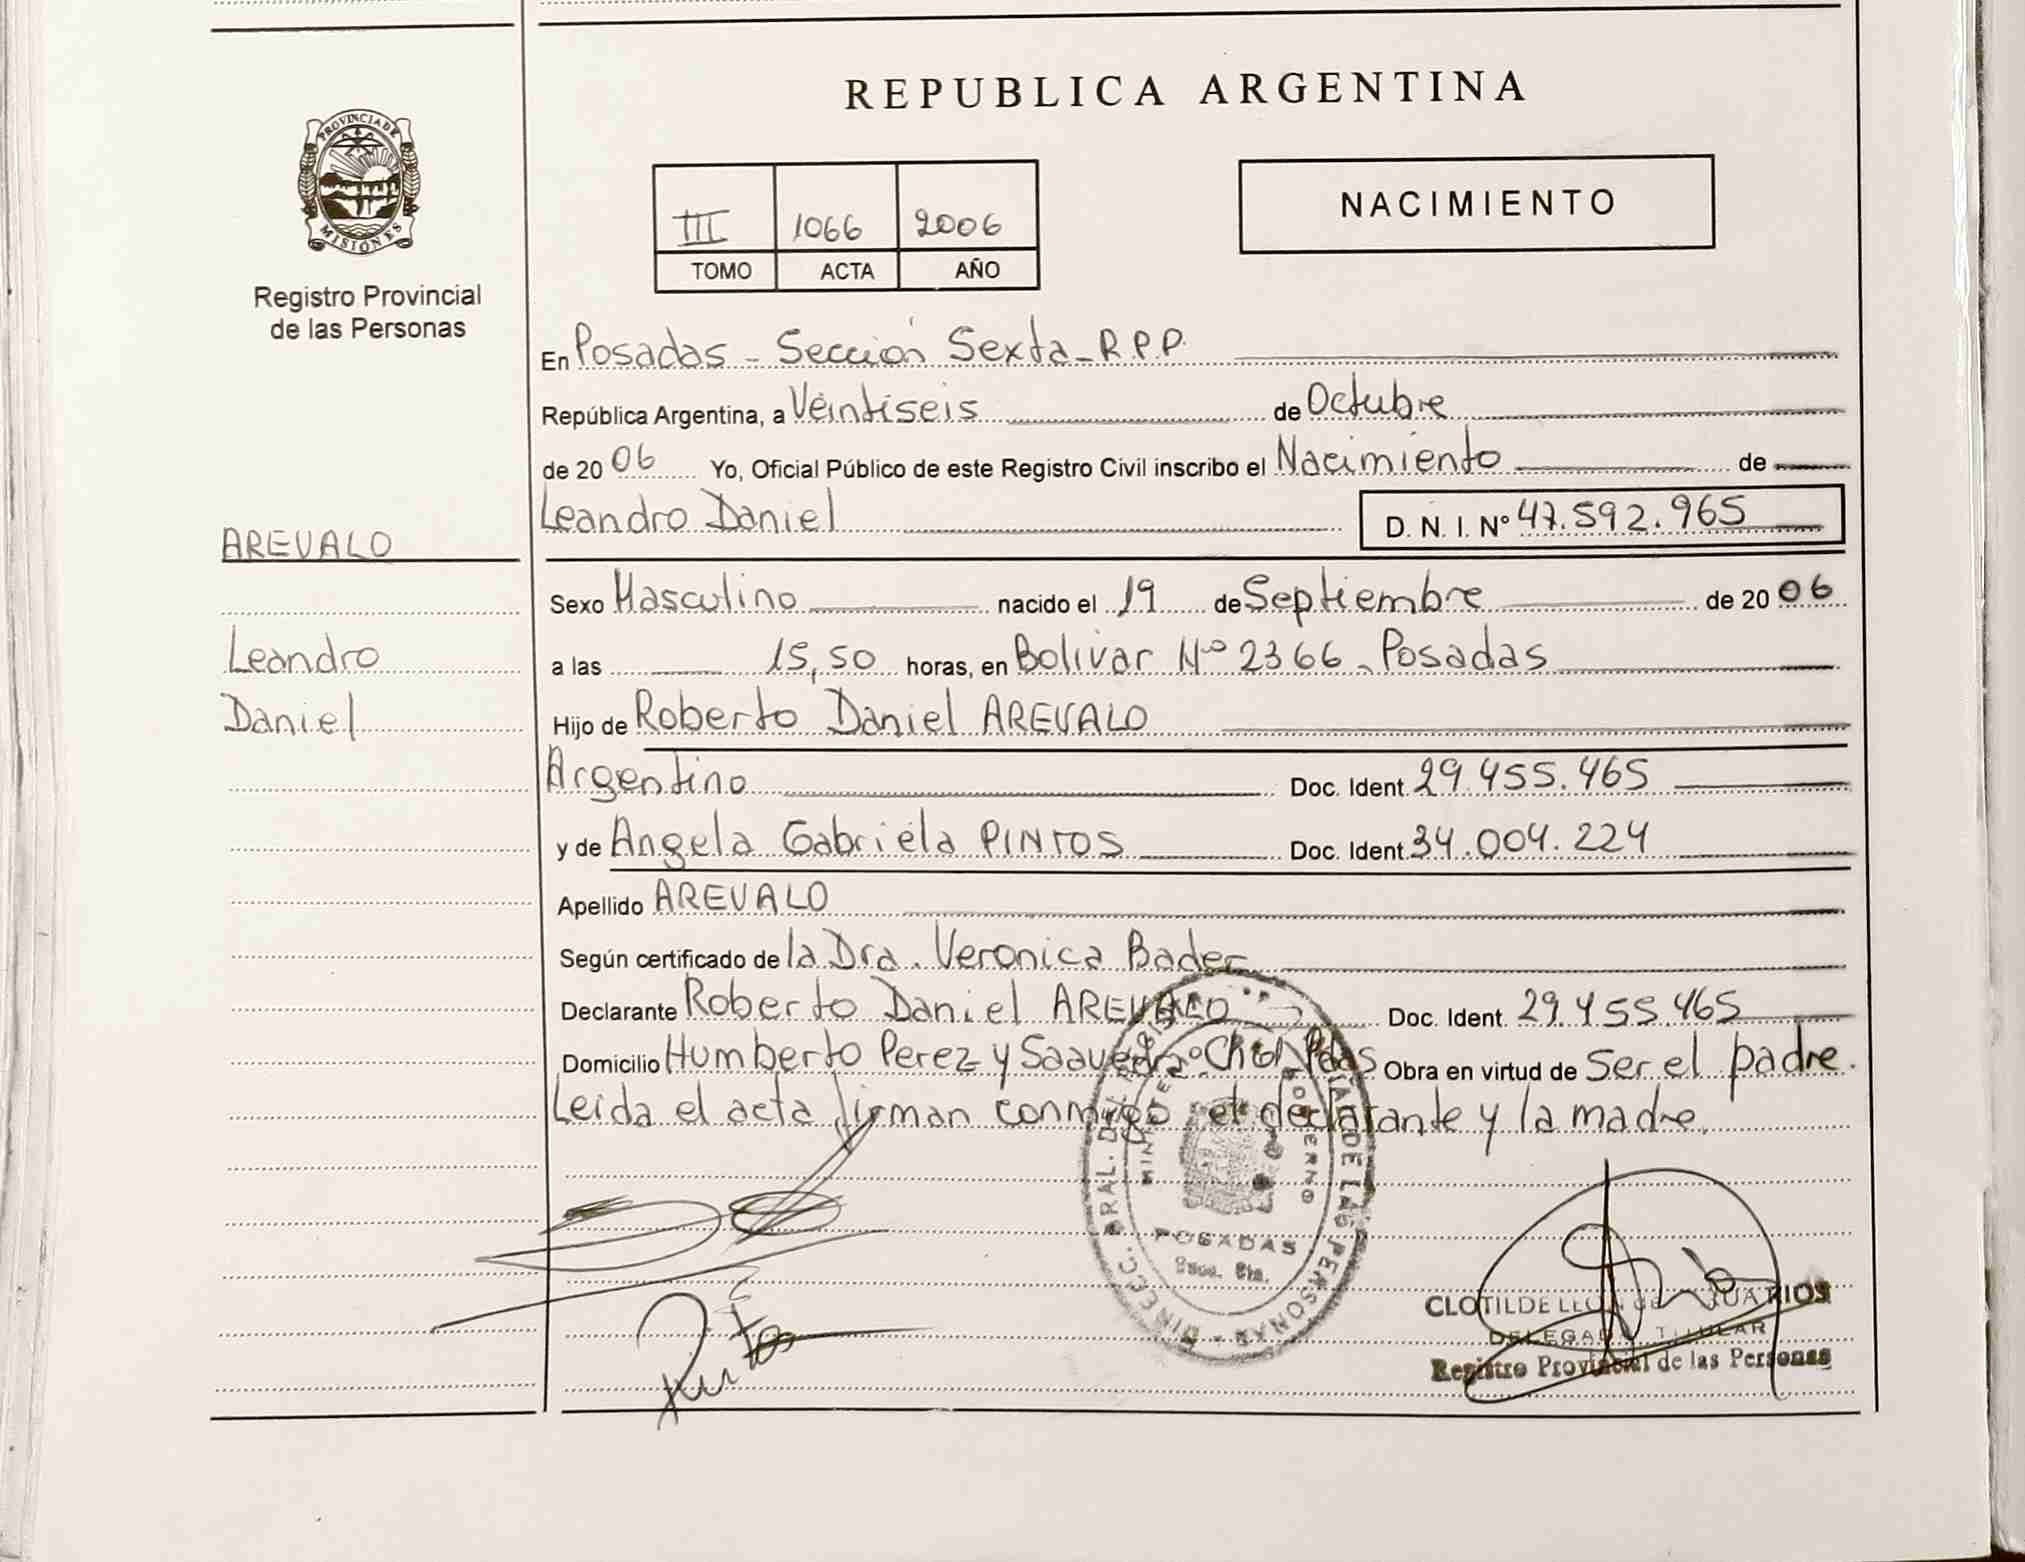 REPUBLICA ARGENTINA
PROVINCIA DE
MISIONES
Registro Provincial
de las Personas
III 1066 2006
TOMO ACTA AÑO
NACIMIENTO
En Posadas - Sección Sexta - R.P.P.
República Argentina, a Veintiseis de Octubre
de 20 06 Yo, Oficial Público de este Registro Civil inscribo el Nacimiento de
Leandro Daniel D. N. I. Nº 47.592.965
AREVALO
Sexo Masculino nacido el 19 de Septiembre de 20 06
Leandro
a las 15,50 horas, en Bolivar Nº 2366 - Posadas
Daniel
Hijo de Roberto Daniel AREVALO
Argentino Doc. Ident. 29.455.465
y de Angela Gabriela PINTOS Doc. Ident. 34.004.224
Apellido AREVALO
Según certificado de la Dra. Veronica Bader
Declarante Roberto Daniel AREVALO Doc. Ident. 29.455.465
Domicilio Humberto Perez y Saavedra Obra en virtud de Ser el padre.
Leida el acta firman conmigo el declarante y la madre.
MINISTERIO GOBIERNO
DE LAS PERSONAS
POSADAS
CLOTILDE
DELEGADA TITULAR
Registro Provincial de las Personas